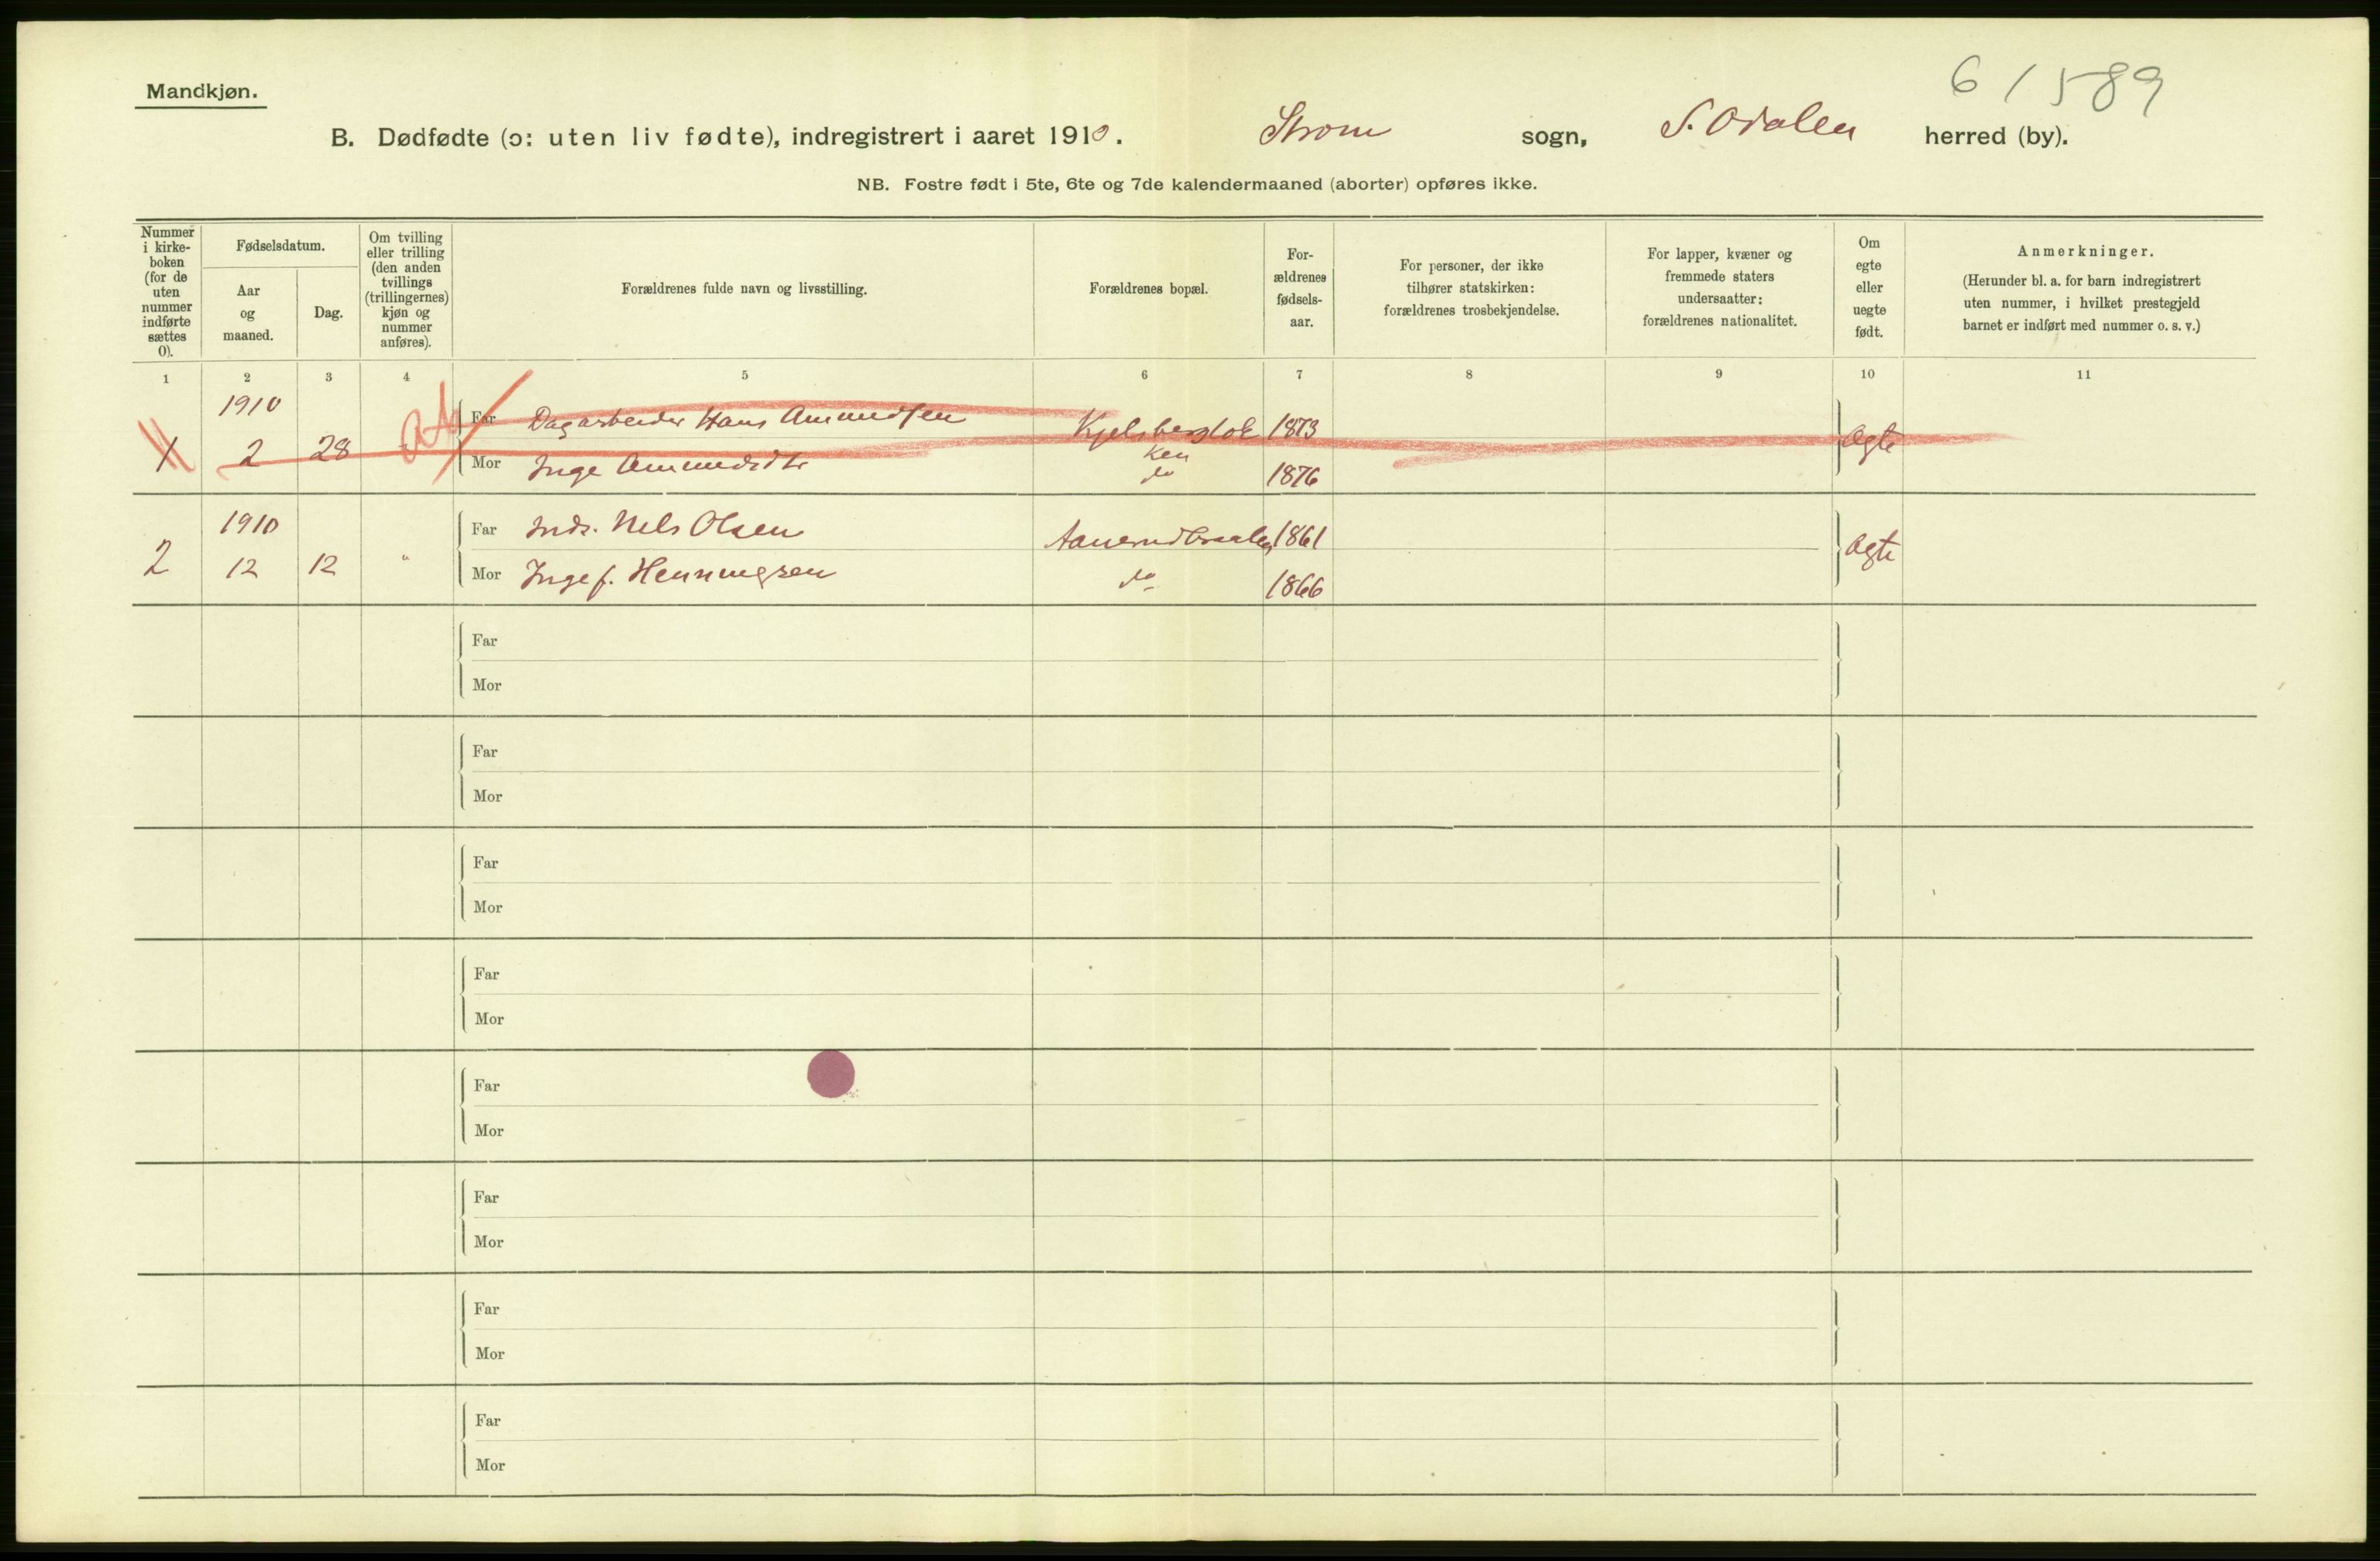 6/589
Mandkjøn.
B. Dødfødte (ɔ: uten liv fødte), indregistrert i aaret 1910. Strøm sogn, S. Odalen herred (by).
NB. Fostre født i 5te, 6te og 7de kalendermaaned (aborter) opføres ikke.
Nummer
i kirke-
boken
(for de
uten
nummer
indførte
sættes
0).
Fødselsdatum.
Aar
og
maaned.
Dag.
Om tvilling
eller trilling
(den anden
tvillings
(trillingernes)
kjøn og
nummer
anføres).
Forældrenes fulde navn og livsstilling.
Forældrenes bopæl.
For-
ældrenes
fødsels-
aar.
For personer, der ikke
tilhører statskirken:
forældrenes trosbekjendelse.
For lapper, kvæner og
fremmede staters
undersaatter:
forældrenes nationalitet.
Om
egte
eller
uegte
født.
Anmerkninger.
(Herunder bl. a. for barn indregistrert
uten nummer, i hvilket prestegjeld
barnet er indført med nummer o. s. v.)
1 2 3 4 5 6 7 8 9 10 11
1910
Far Dagarbeider Hans Amundsen 1873
1 2 28 Ægte
Mor Inge Amundsdtr do 1876
1910
Far Inds. Nels Olsen 1861
2 12 12 " Ægte
Mor Inge f. Henningsen do 1866
Far
Mor
Far
Mor
Far
Mor
Far
Mor
Far
Mor
Far
Mor
Far
Mor
Far
Mor